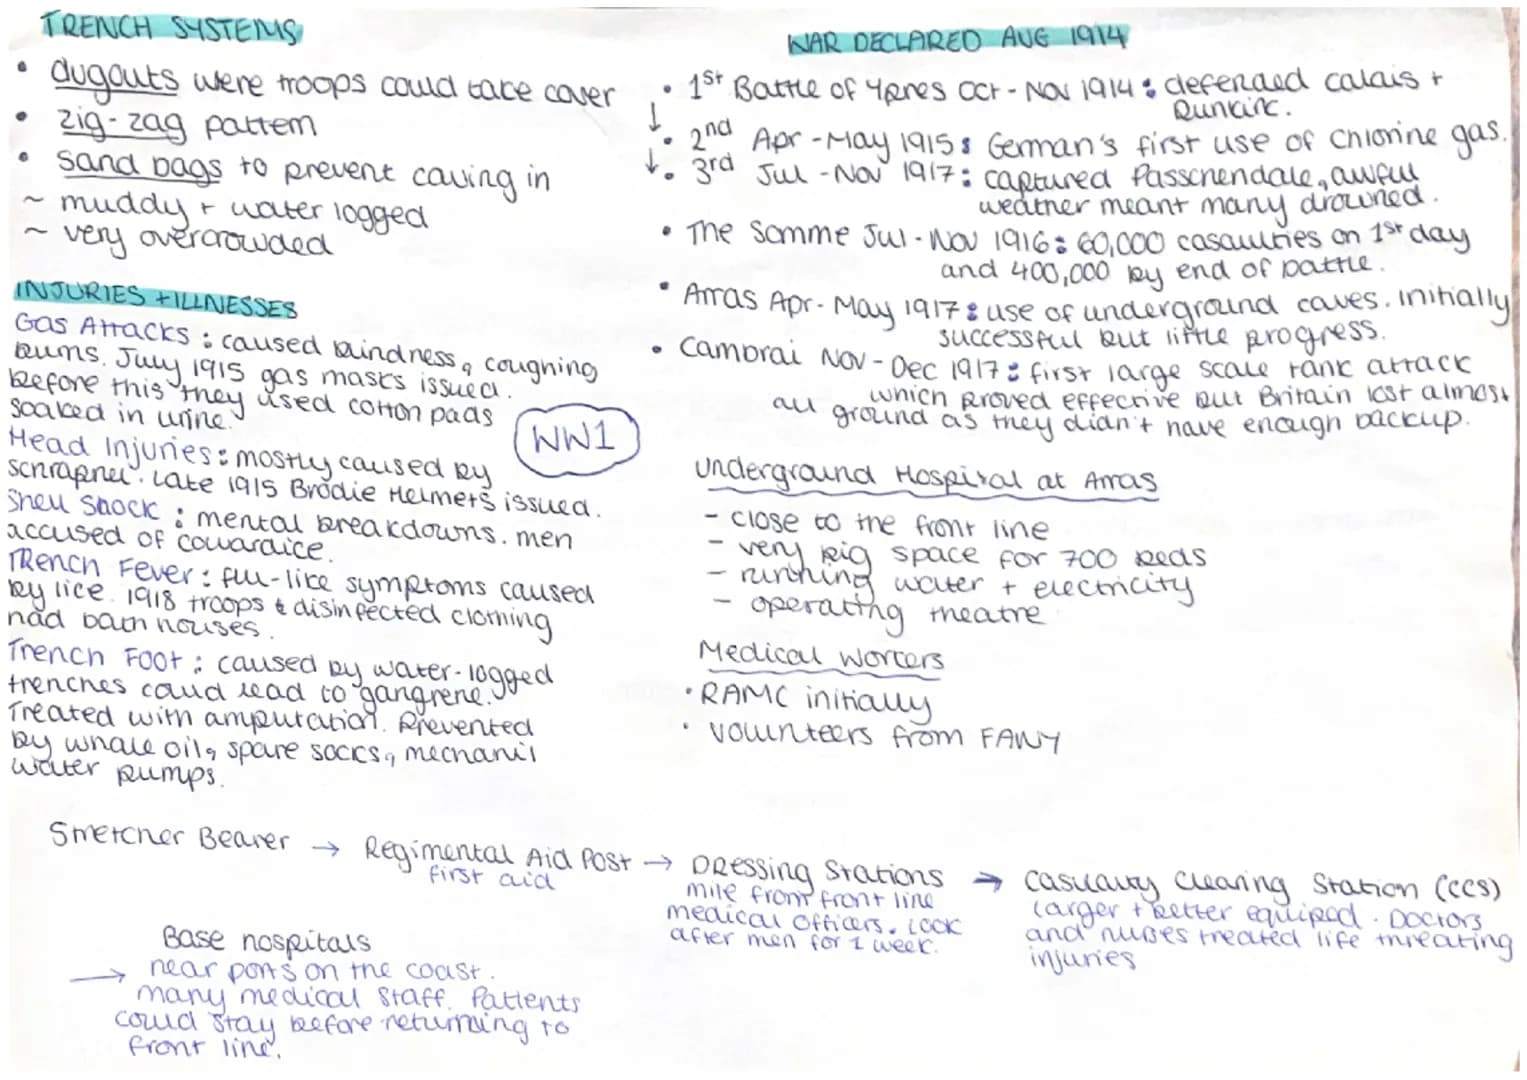 TRENCH SYSTEMS
• dugouts were troops could take cover
• zig-zag pattern
• sand bags to prevent caving in
~ muddy + water logged
~ very overcrowded
INJURIES + ILLNESSES
Gas Attacks : caused blindness, coughing
burns. July 1915 gas masks issued.
before this they used cotton pads
soaked in urine.
Head Injuries : mostly caused by
schrapnel. Late 1915 Brodie Helmets issued.
Shell Shock : mental breakdowns. men
accused of cowardice.
Trench Fever : flu-like symptoms caused
by lice. 1918 troops & disinfected clothing
had bath houses.
Trench Foot : caused by water-logged
trenches could lead to gangrene.
Treated with amputation. Prevented
by whale oil, spare socks, mechanil
water pumps.
WW1
WAR DECLARED AUG 1914
• 1st Battle of Ypres Oct - Nov 1914 : defended calais +
Dunkirk.
↓• 2nd Apr - May 1915 : German's first use of Chlorine gas.
↓• 3rd Jul - Nov 1917 : captured Passchendale, awful
weather meant many drowned.
• The Somme Jul - Nov 1916 : 60,000 casaulties on 1st day
and 400,000 by end of battle.
• Arras Apr - May 1917 : use of underground caves. initially
successful but little progress.
• Cambrai Nov - Dec 1917 : first large scale tank attack
which proved effective but Britain lost almost
all ground as they didn't have enough backup.
Underground Hospital at Arras
- close to the front line
- very big space for 700 beds
- running water + electricity
- operating theatre
Medical Workers
• RAMC initially
• volunteers from FANY
Stretcher Bearer → Regimental Aid Post → Dressing Stations → Casulauty Clearing Station (CCS)
first aid
mile from front line
medical officers. Look
after men for 1 week.
larger + better equiped. Doctors
and nurses treated life threating
injuries
→ Base hospitals
near ports on the coast.
many medical staff. Patients
could stay before returning to
front line.